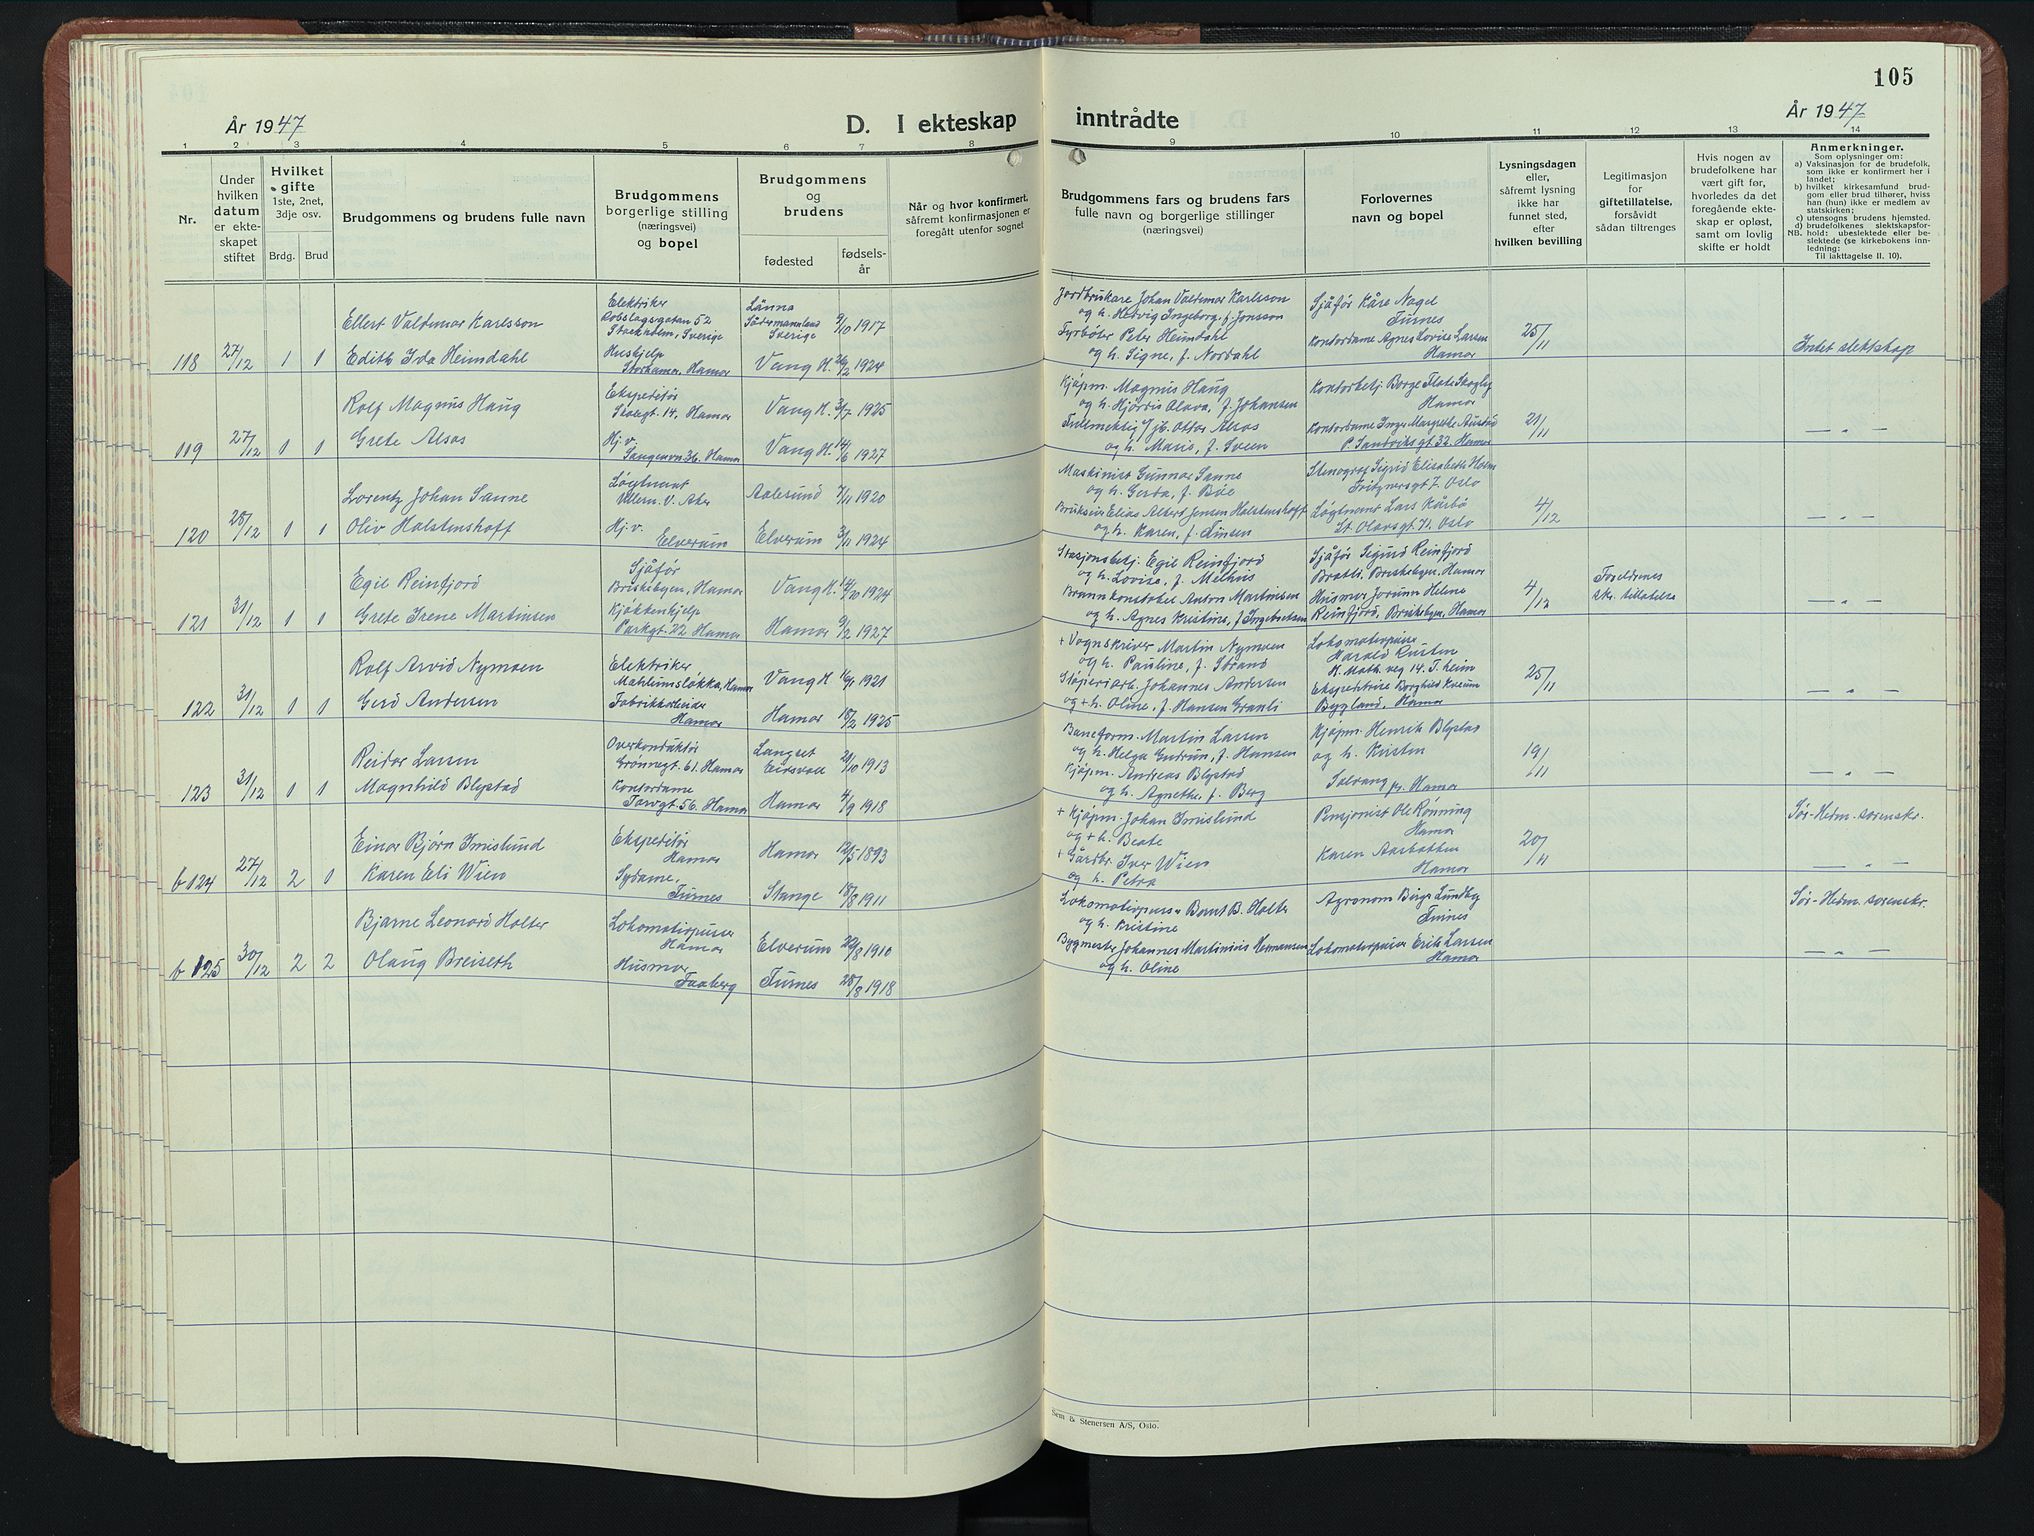 105
År 1947
D. I ekteskap
inntrådte
År 1947
1
2
3
4
5
6
7
8
9
10
11
12
13
14
Nr.
Under
hvilken
datum
er ekte-
skapet
stiftet
Hvilket
gifte
1ste, 2net,
3dje osv.
Brdg.
Brud
Brudgommens og brudens fulle navn
Brudgommens
borgerlige stilling
(næringsvei)
og bopel
Brudgommens
og
brudens
fødested
fødsels-
år
Når og hvor konfirmert,
såfremt konfirmasjonen er
foregått utenfor sognet
Brudgommens fars og brudens fars
fulle navn og borgerlige stillinger
(næringsvei)
Forlovernes
navn og bopel
Lysningsdagen
eller,
såfremt lysning
ikke har
funnet sted,
efter
hvilken bevilling
Legitimasjon
for
giftetillatelse,
forsåvidt
sådan tiltrenges
Hvis nogen av
brudefolkene har
vært gift før,
hvorledes da det
foregående ekte-
skap er opløst,
samt om lovlig
skifte er holdt
Anmerkninger.
Som oplysninger om:
a) Vaksinasjon for de brudefolk,
som ikke er konfirmert her i
landet;
b) hvilket kirkesamfund brud-
gom eller brud tilhører, hviss
han (hun) ikke er medlem av
statskirken;
c) utensogns brudens hjemsted.
d) brudefolkenes slektskapsfor-
NB. hold: ubeslektede eller be-
slektede (se kirkebokens inn-
ledning:
Til iakttagelse II. 10).
118 27/12 1 1
Ellert Valdemar Karlsson
Edith Ida Heimdahl
Elektriker
Robslagsgatan 52
Stockholm, Sverige
Hushjelp
Storhamar, Hamar
Länna
Södermannland
Sverige
9/10 1917
Vang H. 26/2 1924
Jordbrukare Johan Valdemar Karlsson
og h. Hedvig Ingeborg, f. Jonsson
Fyrbøter Peter Heimdahl
og h. Signe, f. Nordahl
Sjåfør Kåre Nagel
Furnes
Kontordame Agnes Lovise Larsen
Hamar
25/11
Intet slektskap
119 27/12 1 1
Rolf Magnus Haug
Grete Alsos
Ekspeditør
Skolegt. 14. Hamar
Hj. v.
Sangenvn 36. Hamar
Vang H. 3/7 1925
Vang H. 14/6 1927
Kjøpm. Magnus Haug
og h. Hjørdis Olava, f. Johansen
Fullmektig v/jb. Ottar Alsos
og h. Marie, f. Sveen
Kontorbetj. Borge Flate Skogly
Hamar
Kontordame Inger Margrethe Austad
P. Sandviksgt 32. Hamar
21/11
— „ —
120 28/12 1 1
Lorentz Johan Sanne
Oliv Halstenshoff
Løytnant
Ullern. V. Aker
Hj. v.
Elverum
Aalesund 7/11 1920
Elverum 3/11 1924
Maskinist Gunnar Sanne
og h. Gerda, f. Bøe
Brukseier Elias Albert Jensen Halstenshoff
og h. Karen, f. Finsen
Stenograf Sigrid Elisabeth Holm
Fritznersgt 7. Oslo
Løytnant Lars Kårbø
St. Olavsgt 71. Oslo
4/12
— „ —
121 31/12 1 1
Egil Reinfjord
Grete Irene Martinsen
Sjåfør
Briskebyen, Hamar
Kjøkkenhjelp
Parkgt. 22 Hamar
Vang H. 14/10 1924
Hamar 9/2 1927
Stasjonsbetj. Egil Reinfjord
og h. Lovise, f. Melhus
Brannkonstabel Anton Martinsen
og h. Agnes Kristine, f. Ingebretsen
Sjåfør Sigurd Reinfjord
Bratli, Briskebyen, Hamar
Husmor Jorunn Helene
Reinfjord, Briskebyen, Hamar
4/12
Foreldrenes
skr. tillatelse
— „ —
122 31/12 1 1
Rolf Arvid Nymoen
Gerd Andersen
Elektriker
Mæhlumsløkka, Hamar
Fabrikkarbeider
Hamar
Vang H 16/1 1921
Hamar 18/2 1925
+ Vognskriver Martin Nymoen
og h. Pauline, f. Strand
Støperiarb. Johannes Andersen
og + h. Oline, f. Hansen Granli
Lokomotivpusser
Harald Rusten
K. Math. veg 14. T.heim
Ekspeditrise Borghild Kverum
Bygland, Hamar
25/11
— „ —
123 31/12 1 1
Reidar Larsen
Magnhild Blystad
Overkonduktør
Grønnegt. 61. Hamar
Kontordame
Torvgt. 56. Hamar
Langset
Eidsvoll 21/10 1913
Hamar 4/9 1918
Baneform. Martin Larsen
og h. Helga Gudrun, f. Hansen
Kjøpm. Andreas Blystad
og h. Agnethe, f. Berg
Kjøpm. Henrik Blystad
og h. Kristen
Solvang pr. Hamar
19/11
— „ —
b 124 27/12 2 1
Einar Bjørn Imislund
Karen Eli Wien
Ekspeditør
Hamar
Sydame,
Furnes
Hamar 12/5 1893
Stange 18/8 1911
+ Kjøpm. Johan Imislund
og + h. Beate
+ Gårdbr. Iver Wien
og h. Petra
Pensjonist Ole Rønning
Hamar
Karen Aarbakken
Hamar
20/11
Sør-Hedm. sorenskr.
— „ —
b 125 30/12 2 2
Bjarne Leonard Holter
Olaug Breiseth
Lokomotivpusser
Hamar
Husmor
Faaberg
Elverum 22/8 1910
Furnes 28/8 1918
Lokomotivpusser Bernt B. Holter
og h. Kristine
Bygmester Johannes Martinius Hermansen
og h. Oline
Agronom Birger Lundby
Furnes
Lokomotivpusser Erik Larsen
Hamar
Sør-Hedm. sorenskr.
— „ —
Sem & Stenersen A/S, Oslo.